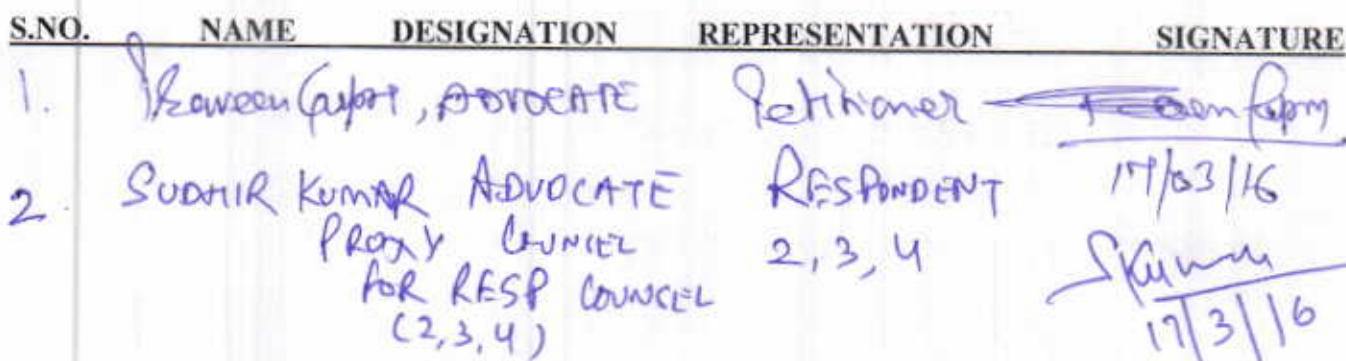 S.NO. NAME DESIGNATION REPRESENTATION SIGNATURE
1. Praveen Gupta, ADVOCATE Petitioner
17/03/16
2. SUDHIR KUMAR ADVOCATE RESPONDENT
PROXY COUNCEL 2, 3, 4
FOR RESP COUNCEL SKumar
(2, 3, 4) 17/3/16